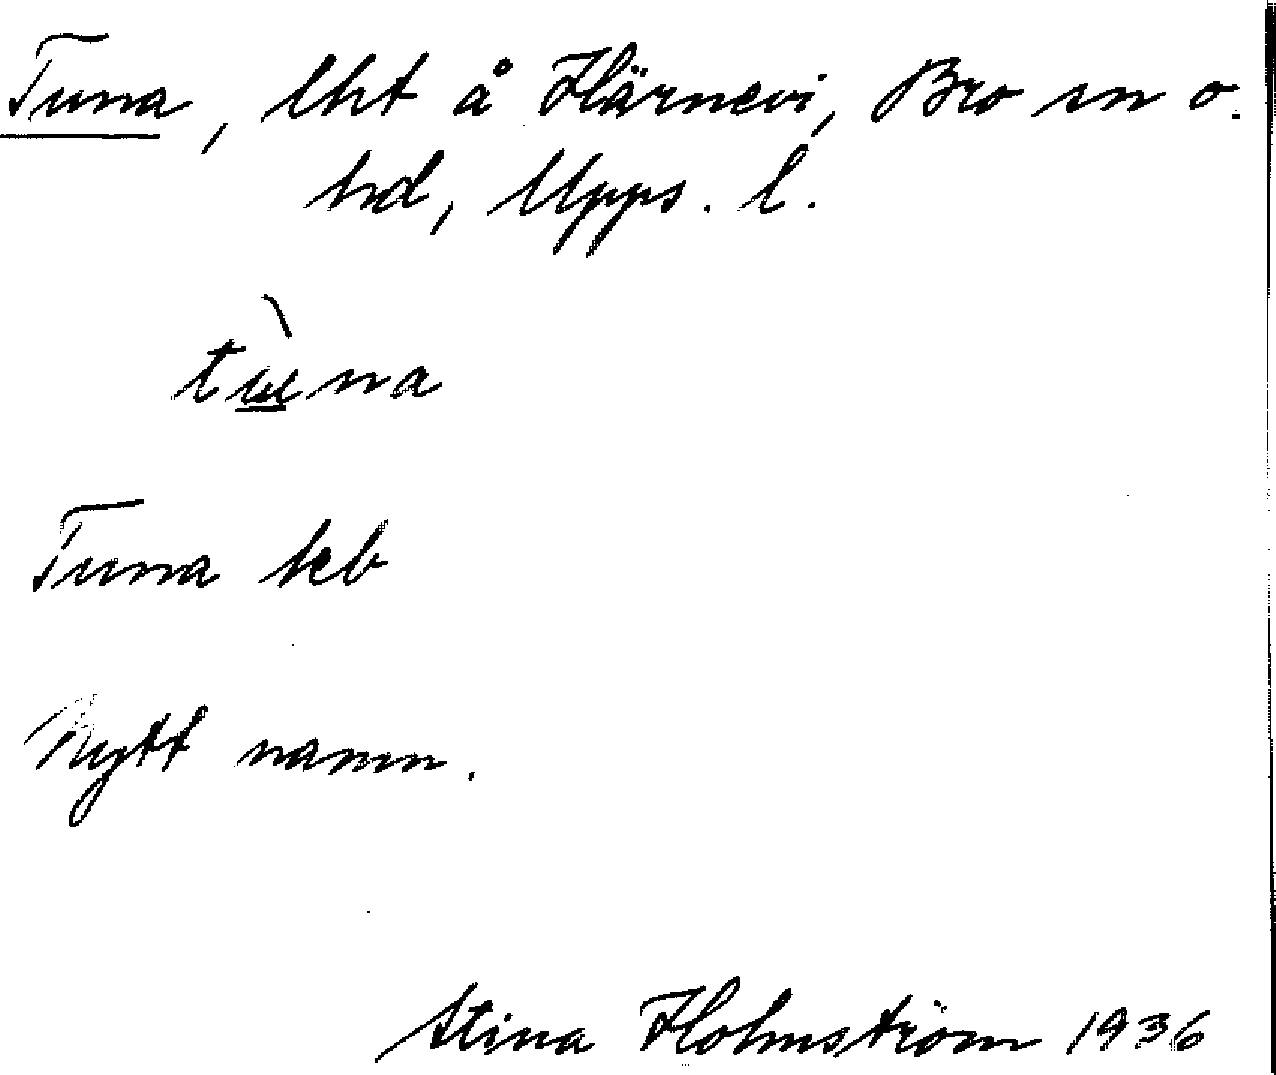 Tuna, lht å Härnevi, Bro sn o.
hd, Upps. l.
tùna
Tuna keb
Nytt namn.
Stina Holmström 1936